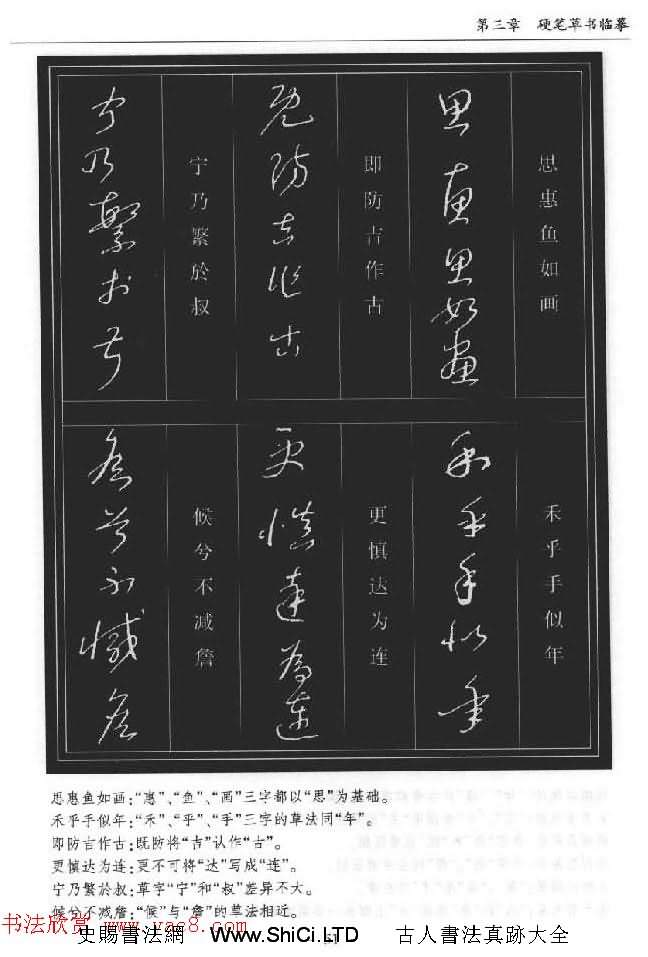 第三章 硬笔草书临摹
思惠鱼如画
思惠鱼如画
即防吉作古
既防吉作古
宁乃繁於叔
宁乃繁於叔
禾乎手似年
禾乎手似年
更慎达为连
更慎達為連
候兮不减詹
候兮不减詹
思惠鱼如画:“惠”、“鱼”、“画”三字都以“思”为基础。
禾乎手似年:“禾”、“乎”、“手”三字的草法同“年”。
即防吉作古:既防将“吉”认作“古”。
更慎达为连:更不可将“达”写成“连”。
宁乃繁於叔:草字“宁”和“叔”差异不大。
候兮不减詹:“候”与“詹”的草法相近。
书法欣赏 www.yac8.com
史賜書法網 www.ShiCi.LTD 古人書法真跡大全